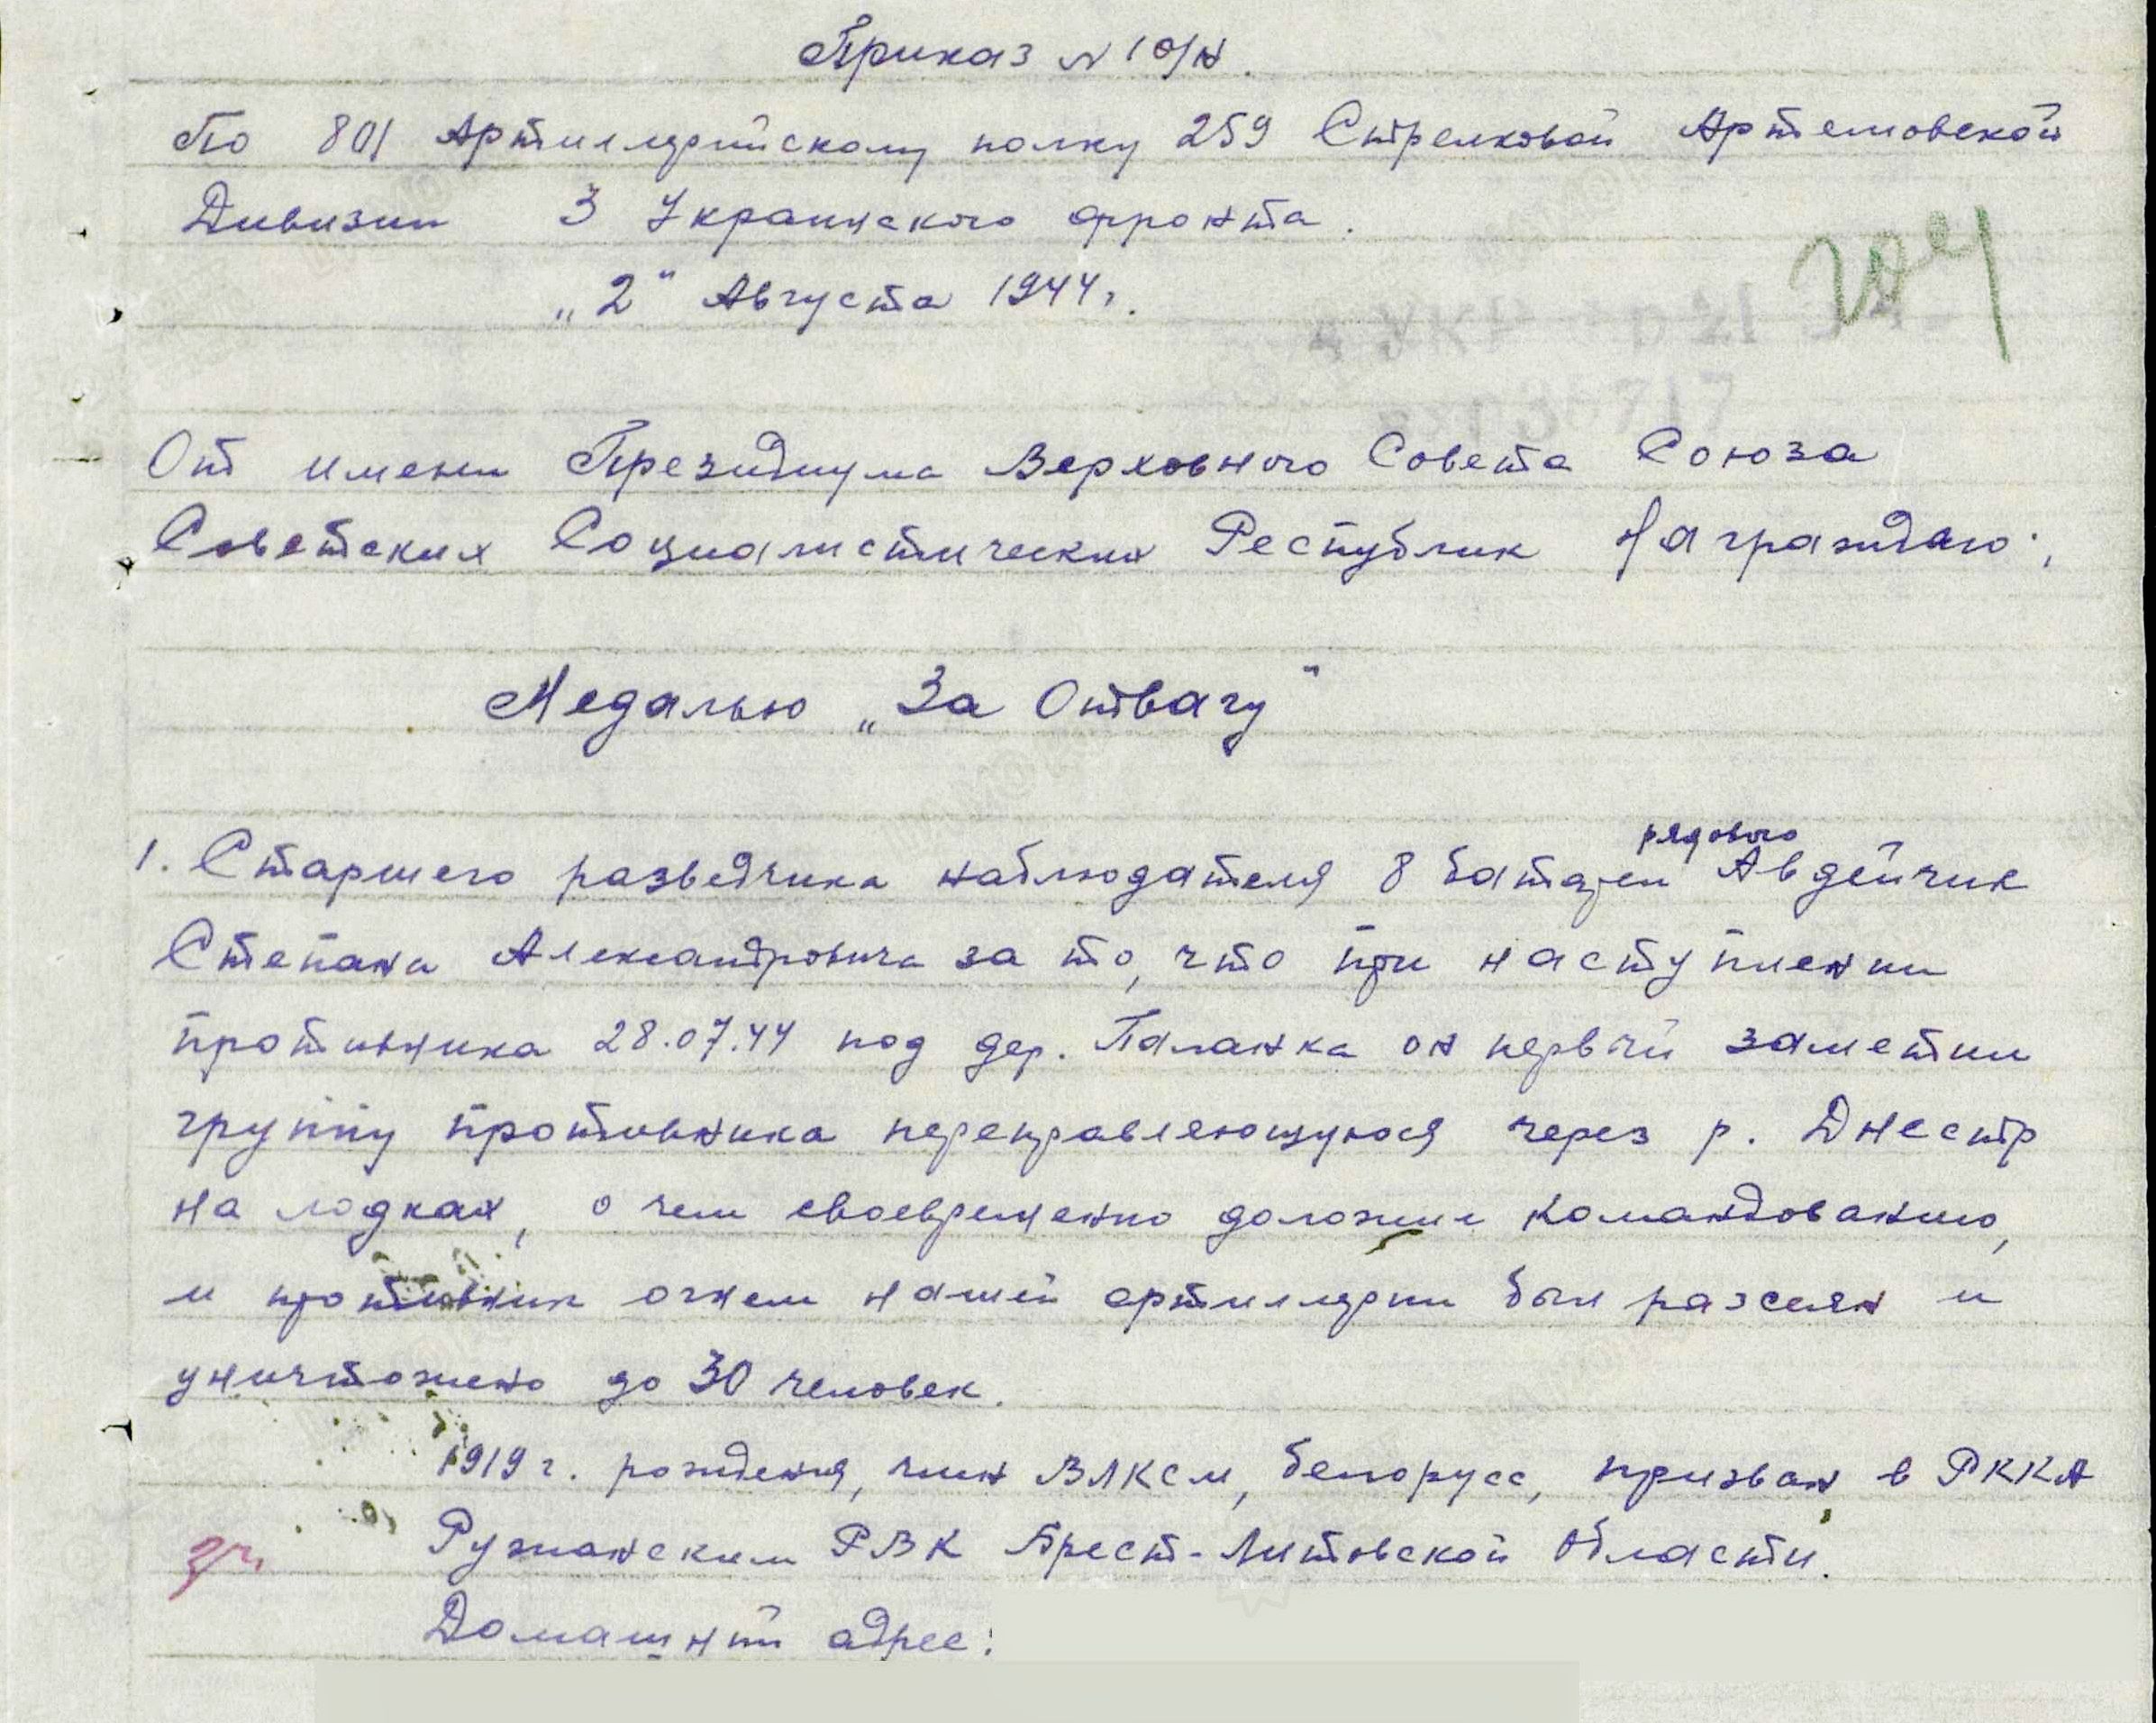 Приказ N 10/н.
По 801 Артиллерийскому полку 259 Стрелковой Артемовской
Дивизии 3 Украинского фронта.
204
„2“ Августа 1944г.
От имени Президиума Верховного Совета Союза
Советских Социалистических Республик Награждаю:
Медалью „За Отвагу“
рядового
1. Старшего разведчика наблюдателя 8 батареи Авдейчик
Степана Александровича за то, что при наступлении
противника 28.07.44 под дер. Паланка он первый заметил
группу противника переправляющуюся через р. Днестр
на лодках, о чем своевременно доложил командованию,
и противник огнем нашей артиллерии был разсеян и
уничтожено до 30 человек.
1919 г. рождения, член ВЛКСМ, белорусс, призван в РККА
Ружанским РВК Брест-Литовской Области.
Домашний адрес: